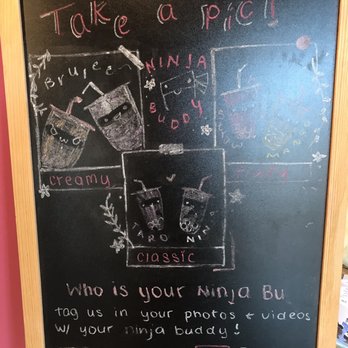 Take a pic!
NINJA
BUDDY
Bruley
creamy
TARO
NIZ
classic
Who is your Ninja Bu
tag us in your photos & videos
w/ your ninja buddy!